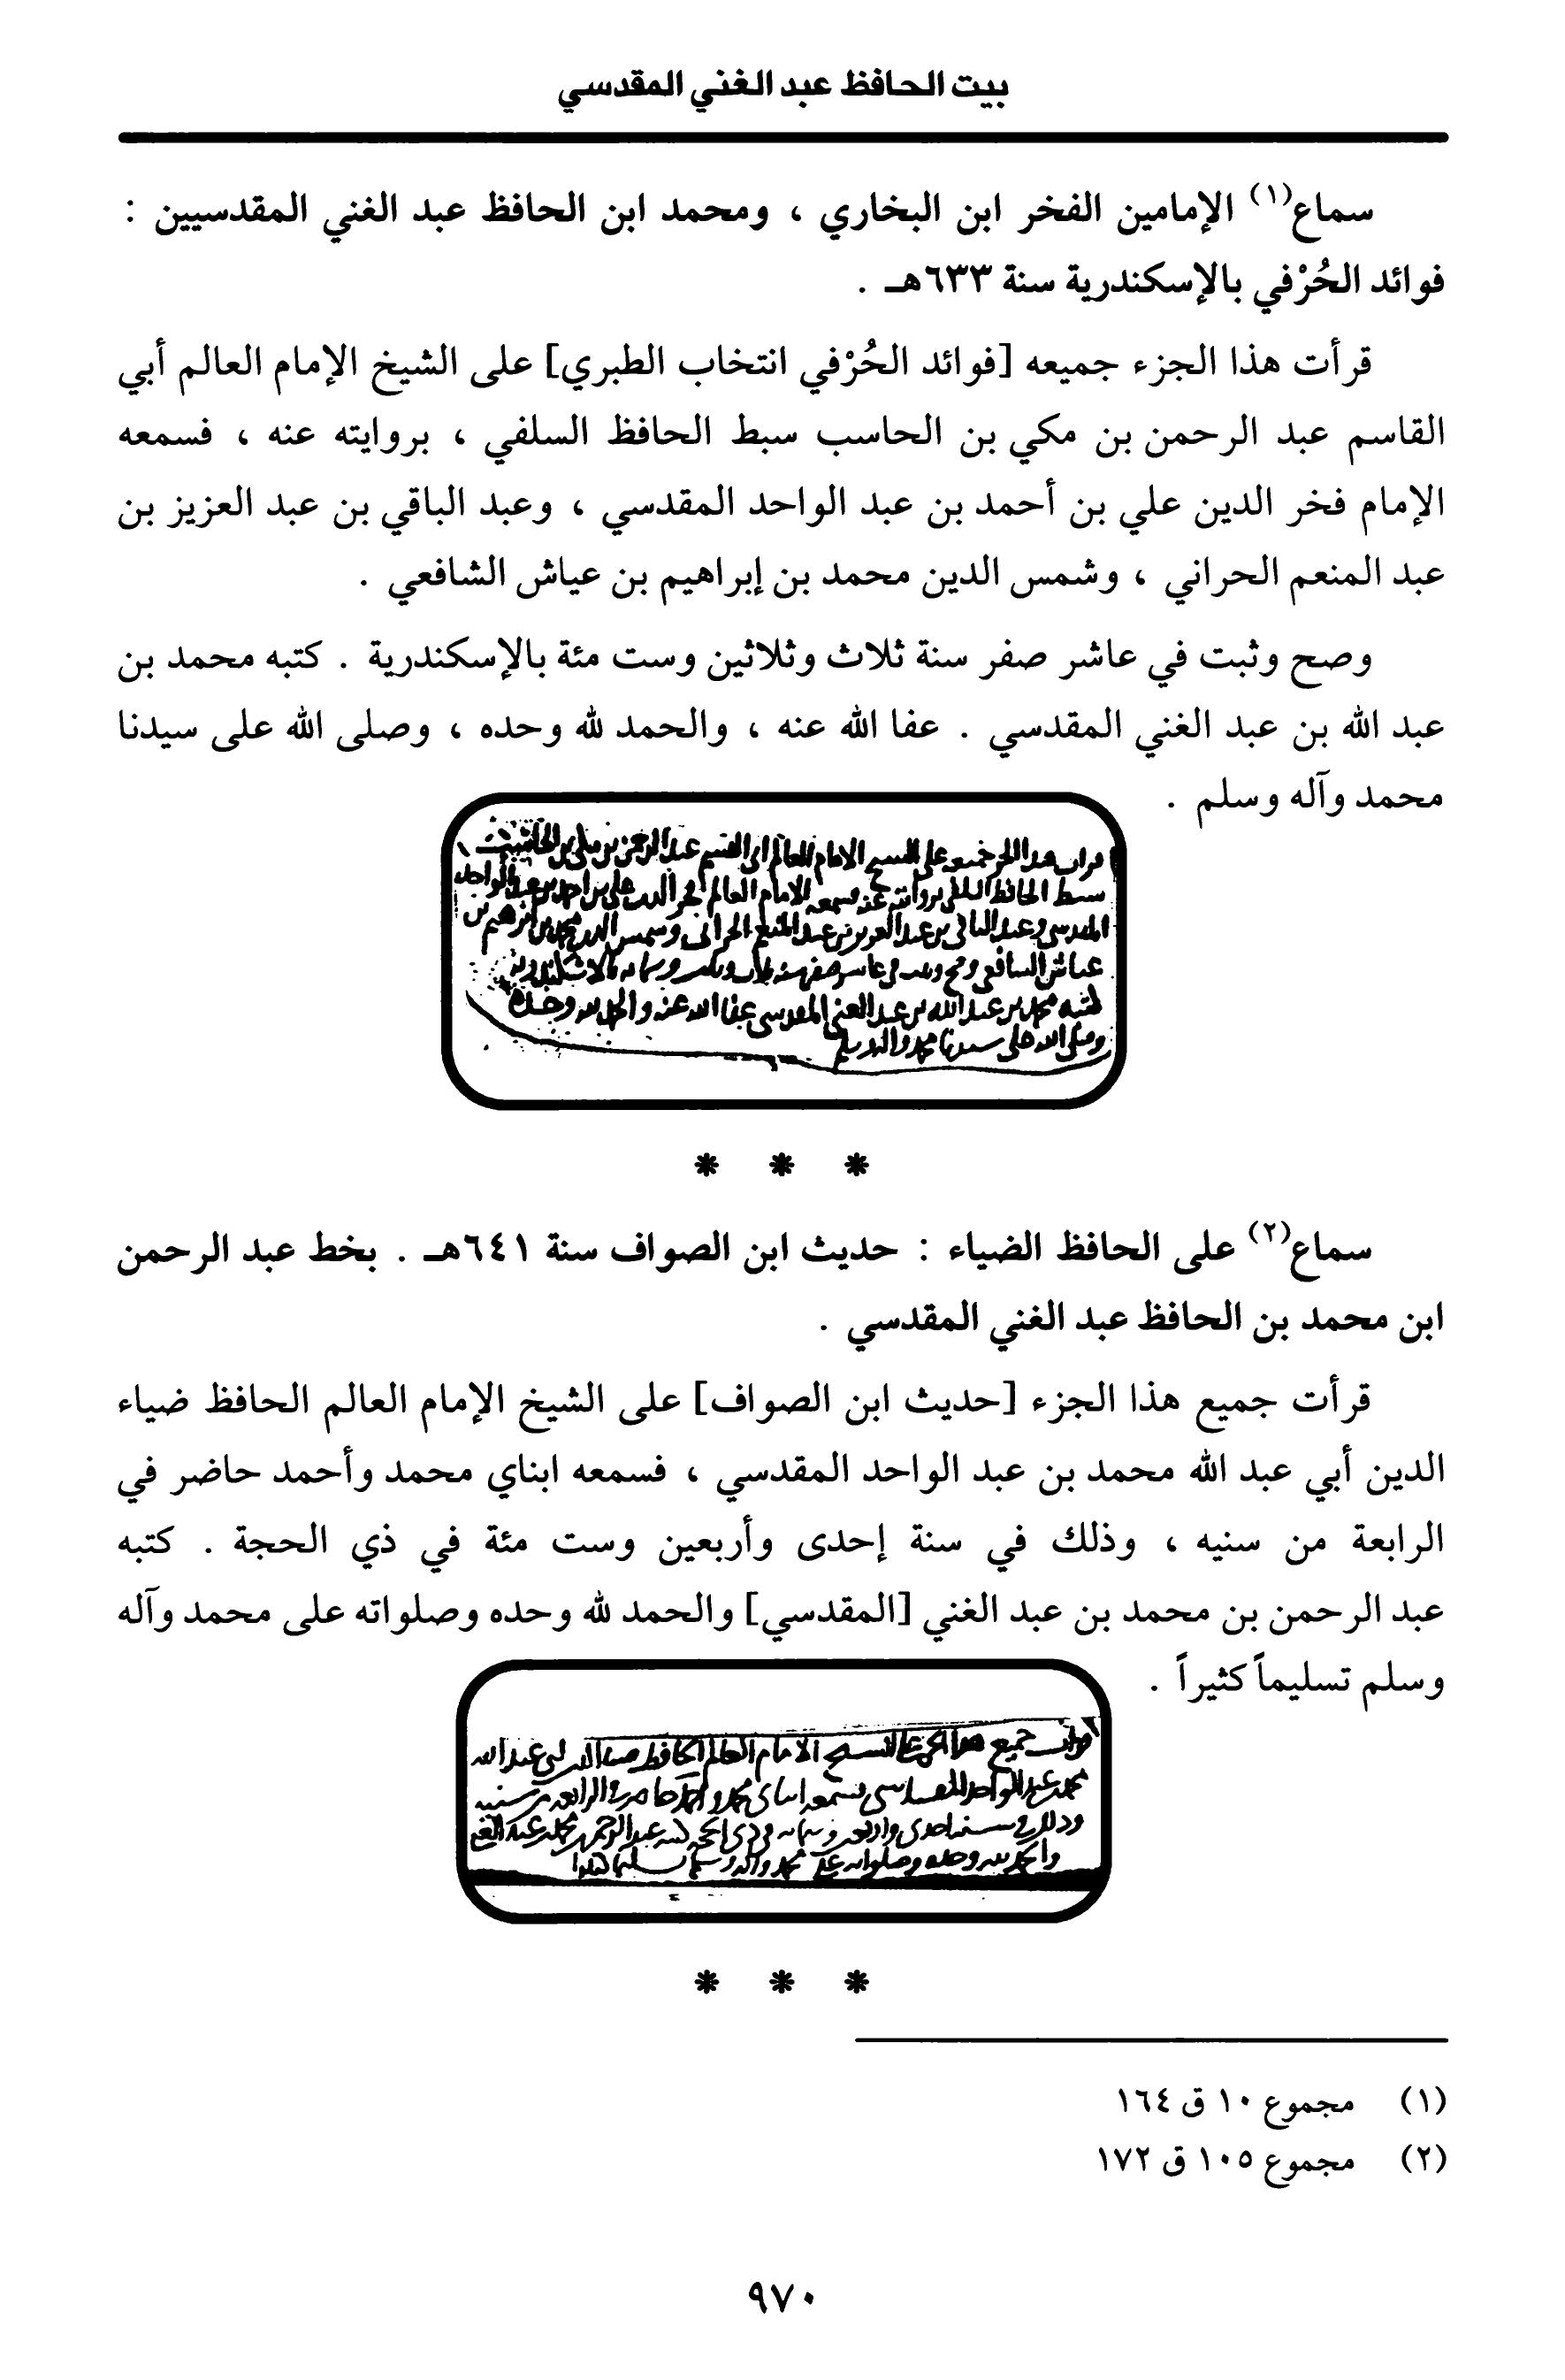 بيت الحافظ عبد الغني المقدسي
سماع(١) الإمامين الفخر ابن البخاري ، ومحمد ابن الحافظ عبد الغني المقدسيين :
فوائد الحُرْفي بالإسكندرية سنة ٦٣٣هـ .
قرأت هذا الجزء جميعه [فوائد الحُرْفي انتخاب الطبري] على الشيخ الإمام العالم أبي
القاسم عبد الرحمن بن مكي بن الحاسب سبط الحافظ السلفي ، بروايته عنه ، فسمعه
الإمام فخر الدين علي بن أحمد بن عبد الواحد المقدسي ، وعبد الباقي بن عبد العزيز بن
عبد المنعم الحراني ، وشمس الدين محمد بن إبراهيم بن عياش الشافعي .
وصح وثبت في عاشر صفر سنة ثلاث وثلاثين وست مئة بالإسكندرية . كتبه محمد بن
عبد الله بن عبد الغني المقدسي . عفا الله عنه ، والحمد لله وحده ، وصلى الله على سيدنا
محمد وآله وسلم .
* * *
سماع(٢) على الحافظ الضياء : حديث ابن الصواف سنة ٦٤١هـ . بخط عبد الرحمن
ابن محمد بن الحافظ عبد الغني المقدسي .
قرأت جميع هذا الجزء [حديث ابن الصواف] على الشيخ الإمام العالم الحافظ ضياء
الدين أبي عبد الله محمد بن عبد الواحد المقدسي ، فسمعه ابناي محمد وأحمد حاضر في
الرابعة من سنيه ، وذلك في سنة إحدى وأربعين وست مئة في ذي الحجة . كتبه
عبد الرحمن بن محمد بن عبد الغني [المقدسي] والحمد لله وحده وصلواته على محمد وآله
وسلم تسليماً كثيراً .
* * *
(١) مجموع ١٠ ق ١٦٤
(٢) مجموع ١٠٥ ق ١٧٢
٩٧٠